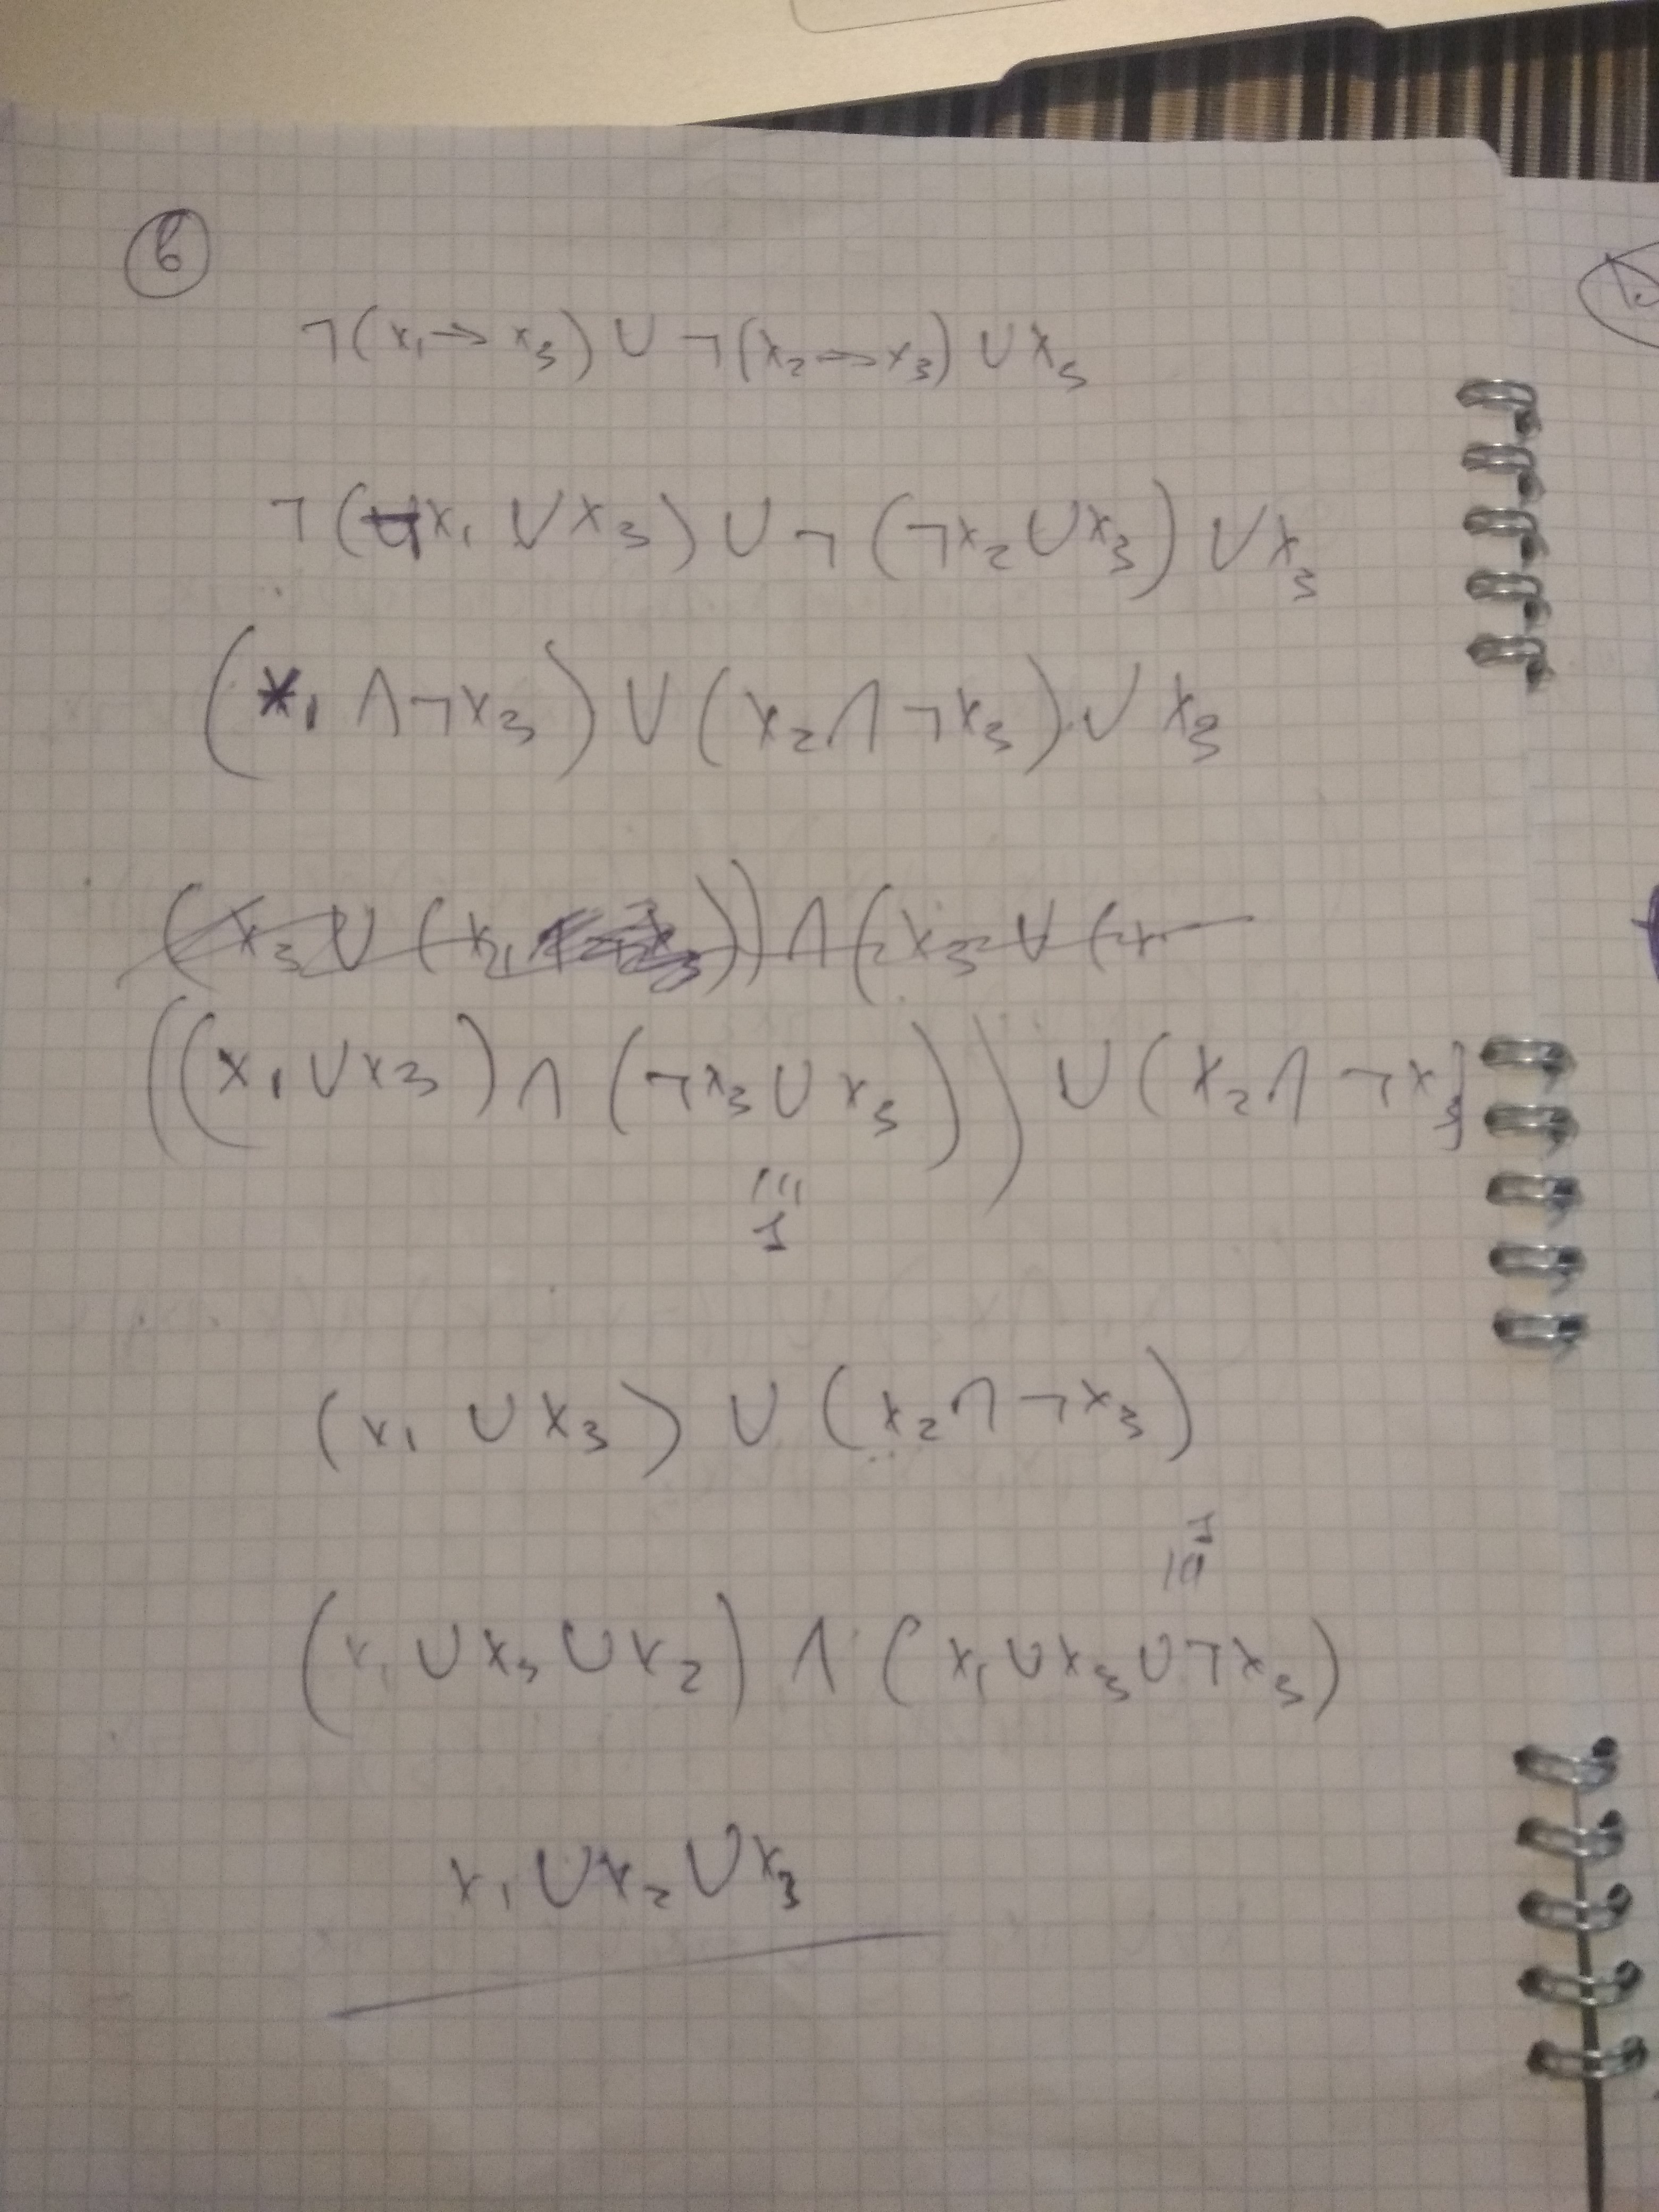 б
¬(x₁→x₃) ∪ ¬(x₂→x₃) ∪ x₃
¬(¬x₁ ∪ x₃) ∪ ¬(¬x₂ ∪ x₃) ∪ x₃
(x₁ ∧ ¬x₃) ∪ (x₂ ∧ ¬x₃) ∪ x₃
((x₁ ∪ x₃) ∧ (¬x₃ ∪ x₃)) ∪ (x₂ ∧ ¬x₃)
≡
1
(x₁ ∪ x₃) ∪ (x₂ ∧ ¬x₃)
1
≡
(x₁ ∪ x₃ ∪ x₂) ∧ (x₁ ∪ x₃ ∪ ¬x₃)
x₁ ∪ x₂ ∪ x₃